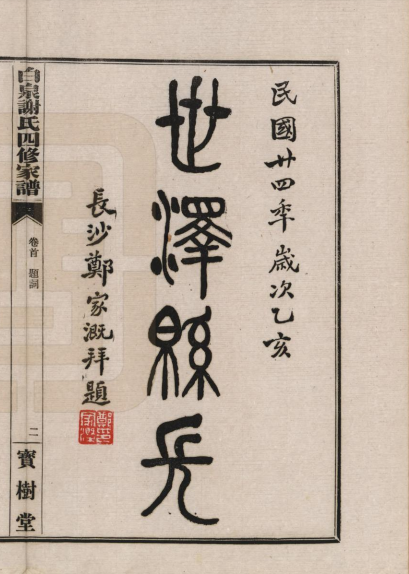 民國廿四年歲次乙亥
世澤緜長
長沙鄭家溉拜題
白泉謝氏四修家譜
卷首 題詞
二
寶樹堂